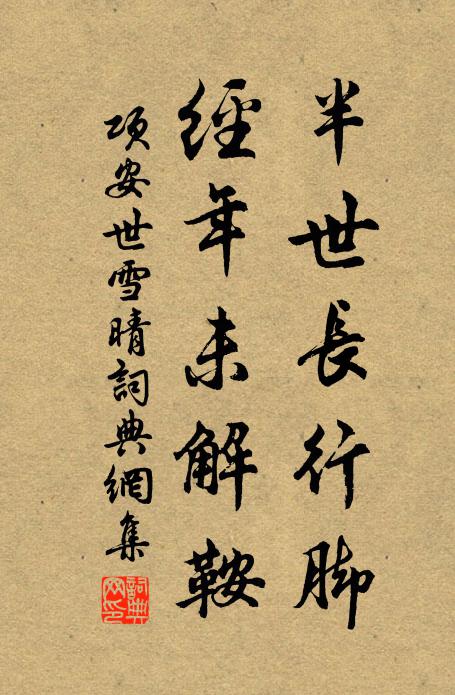 半世長行脚
經年未解鞍
項安世雪晴詞典網集
詞典網印